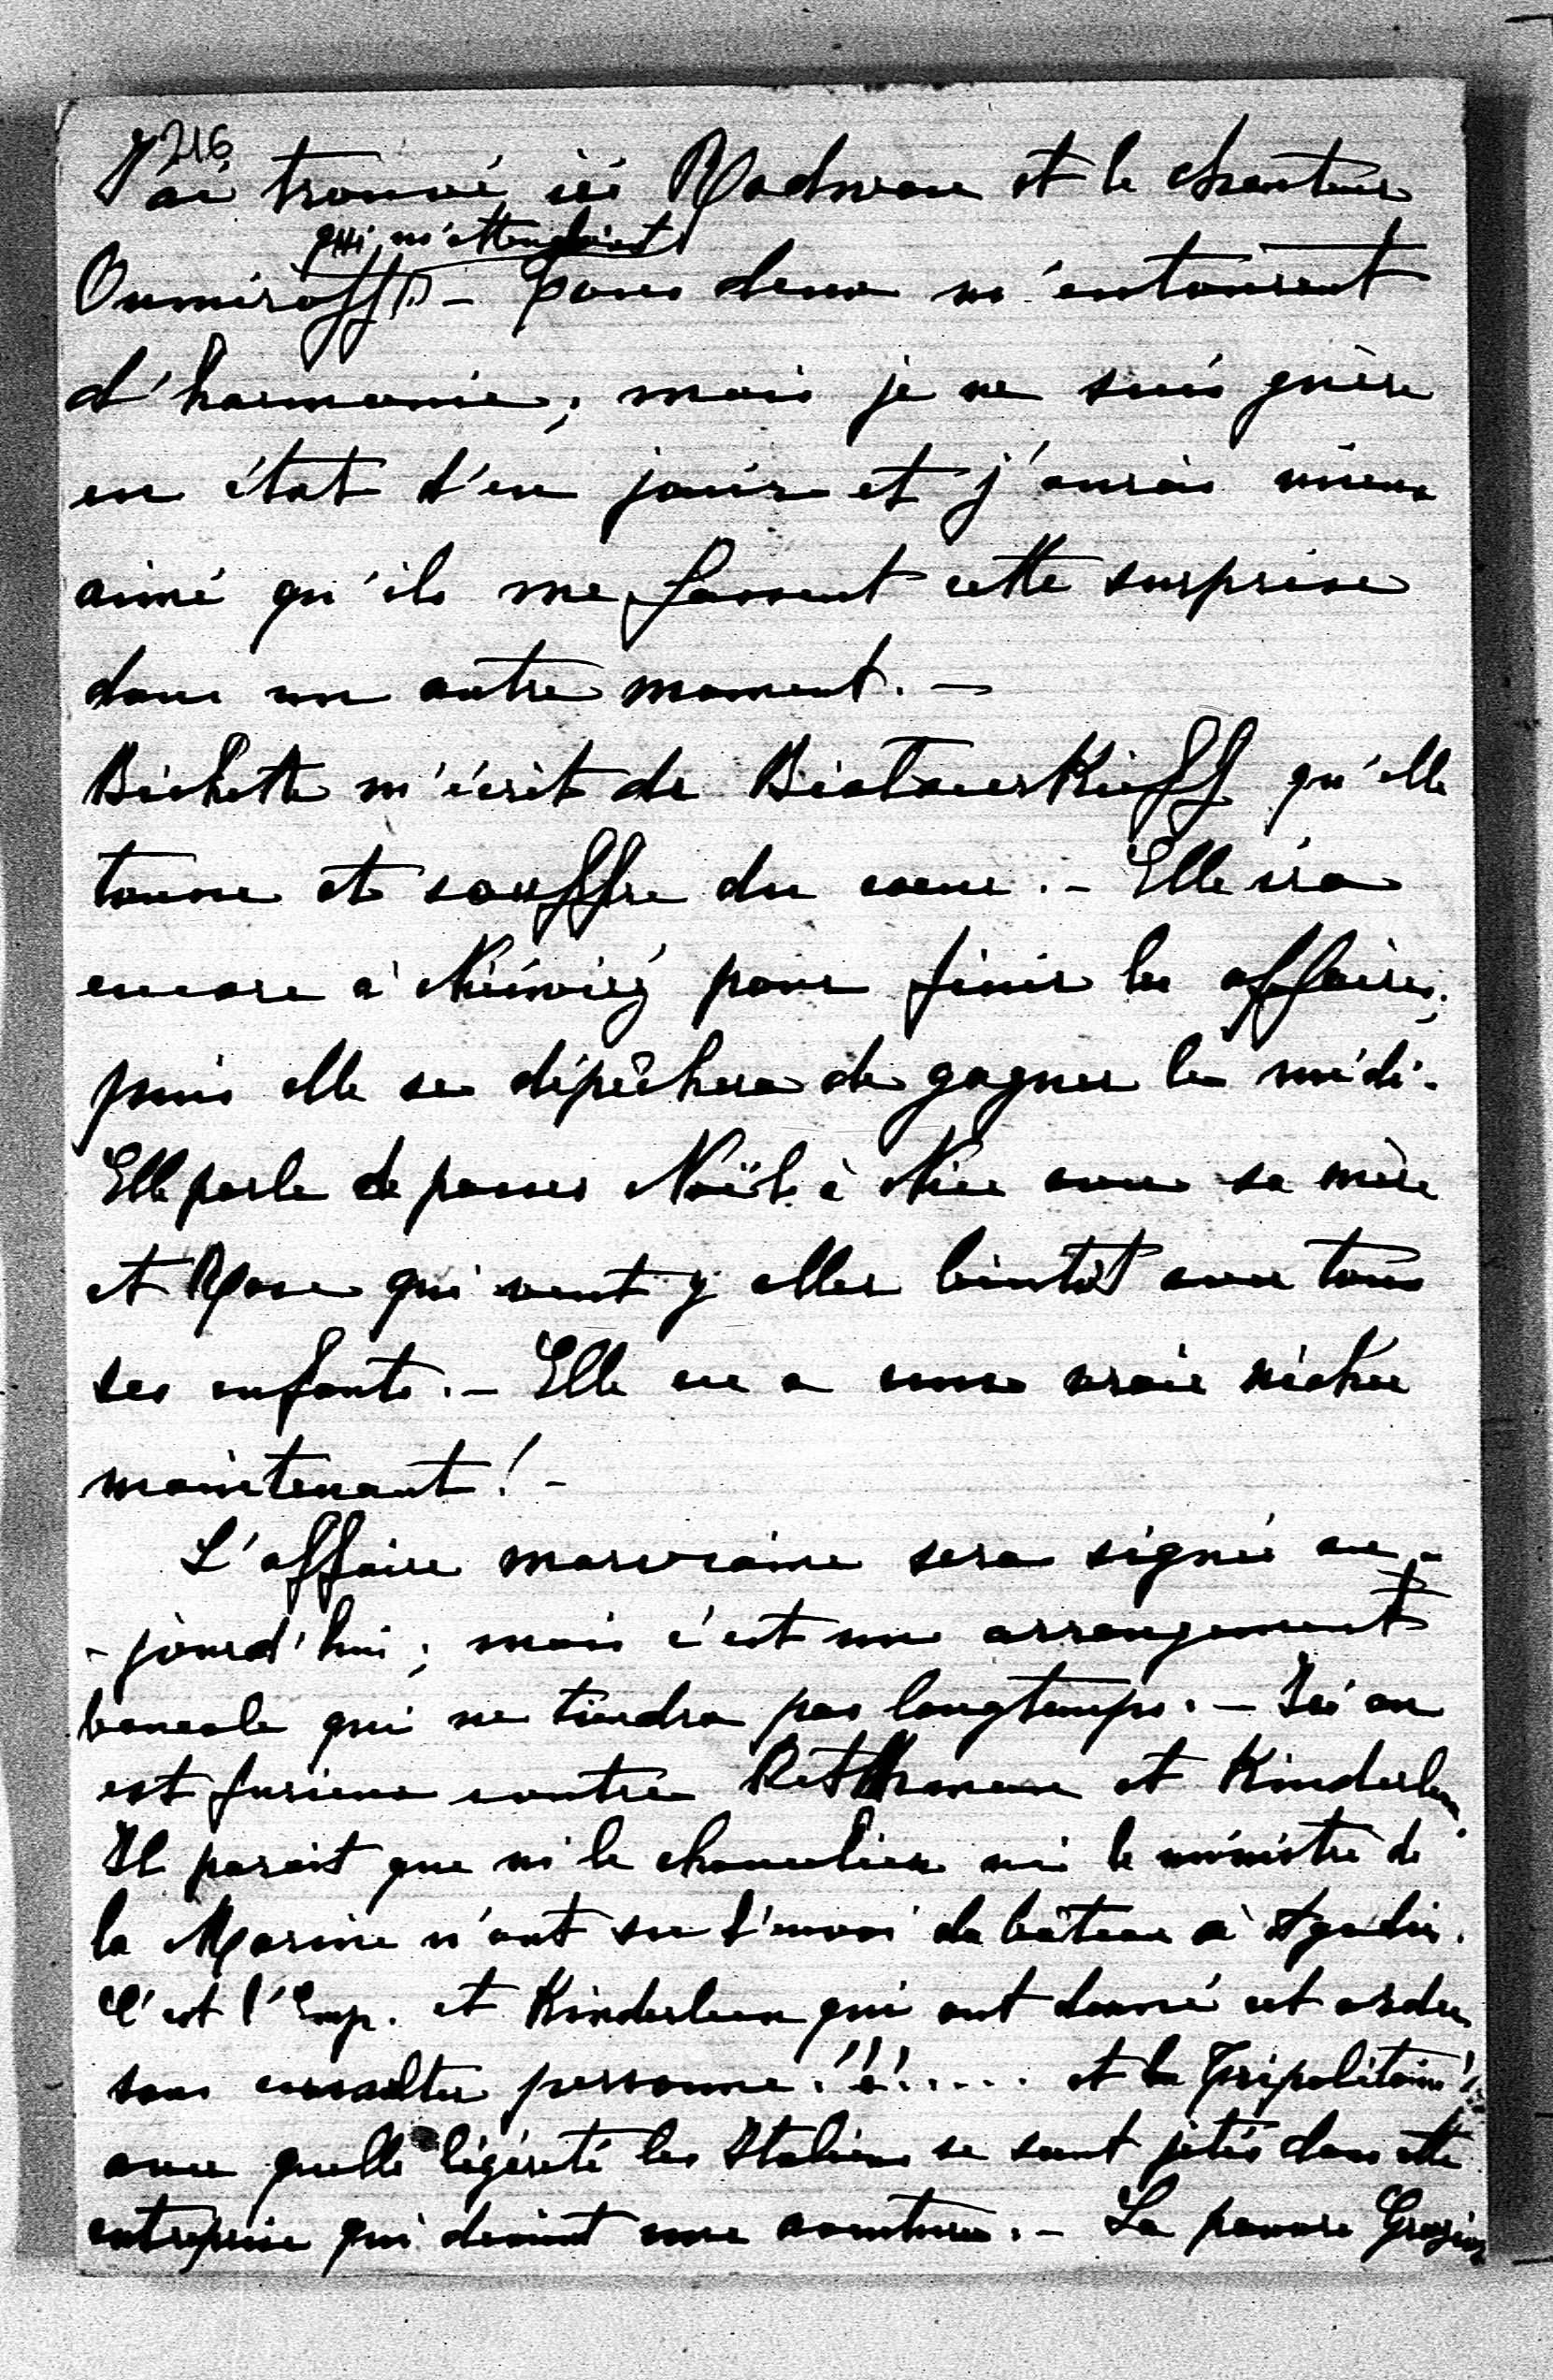 216
J'ai trouvé ici Radwan et le chanteur
qui m'attendaient
Oumiroff – tous deux m'entourent
d'harmonie; mais je ne suis guère
en état d'en jouir et j'aurais mieux
aimé qu'ils me fassent cette surprise
dans un autre moment. –
Bichette m'écrit de Biatocerkieff qu'elle
tousse et souffre du coeur. – Elle ira
encore à Nieśwież pour finir les affaires;
puis elle se dépêchera de gagner le midi.
Elle parle de passer Noël à Nice avec sa mère
et Rose qui veut y aller bientôt avec tous
ses enfants. – Elle en a une vraie nichée
maintenant! –
L'affaire marocaine sera signée au-
-jourd'hui; mais c'est un arrangement
bancale qui ne tiendra pas longtemps. – Ici on
est furieux contre Bethmann et Kinderlen.
Il parait que ni le chancelier ni le ministre de
la Marine n'ont su l'envoi du bateau à Agadir.
C'est l'Emp. et Kinderleen qui ont donné cet ordre
sans consulter personne!!!.... et la Tripolitaine!
avec quelle légèreté les Italiens se sont jetés dans cette
entreprise qui devient une aventure. – La pauvre